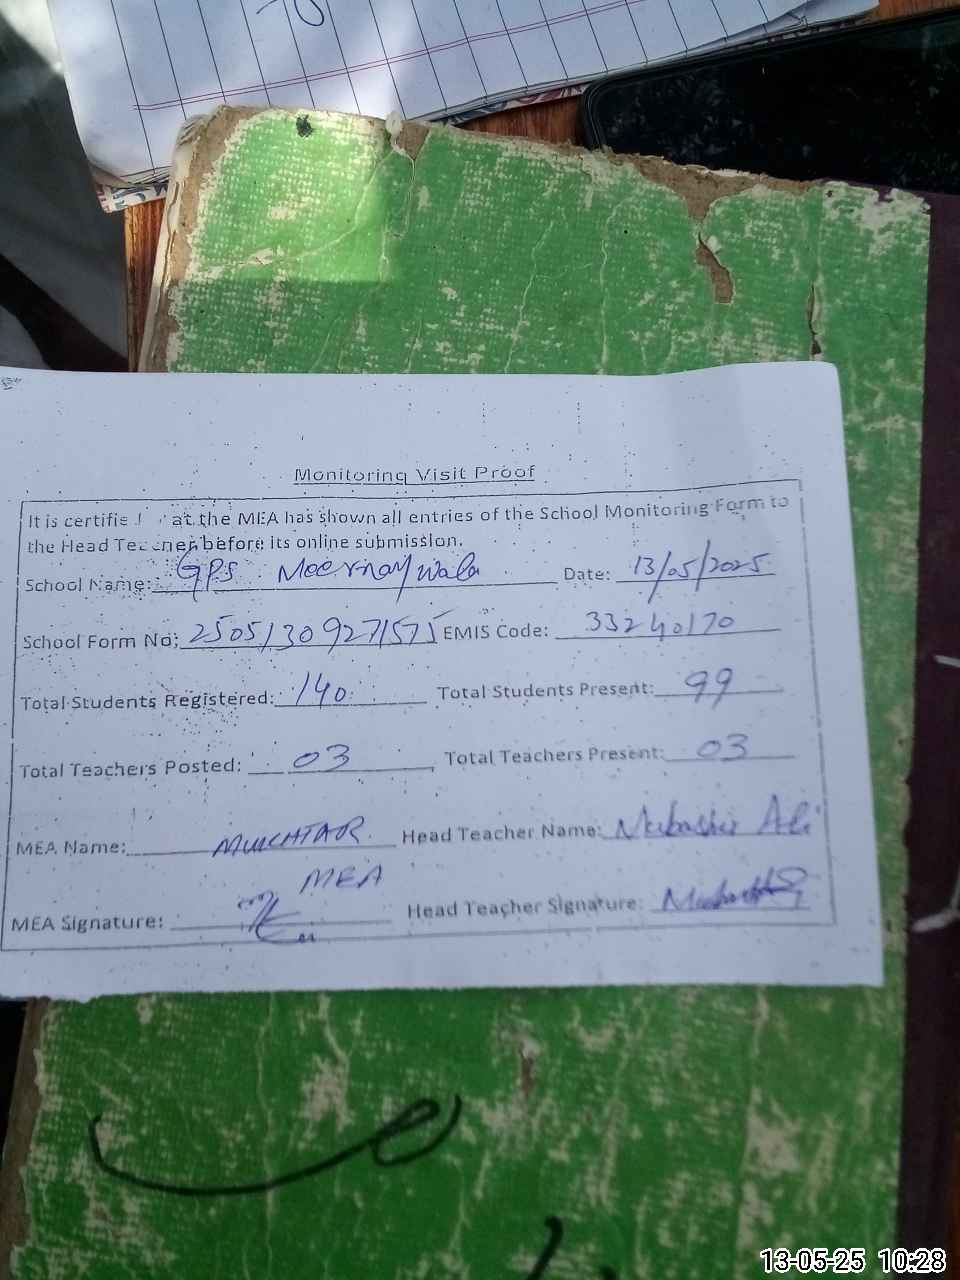 Monitoring Visit Proof
It is certifie at the MEA has shown all entries of the School Monitoring Form to
the Head before its online submission.
School Name: GPS Date: 13/05/2025
School Form No: EMIS Code: 33240170
Total Students Registered: 140 Total Students Present: 99
Total Teachers Posted: 03 Total Teachers Present: 03
MEA Name: MUKHTAR Head Teacher Name: Mubashir Ali
MEA
MEA Signature: Head Teacher Signature:
13-05-25 10:28